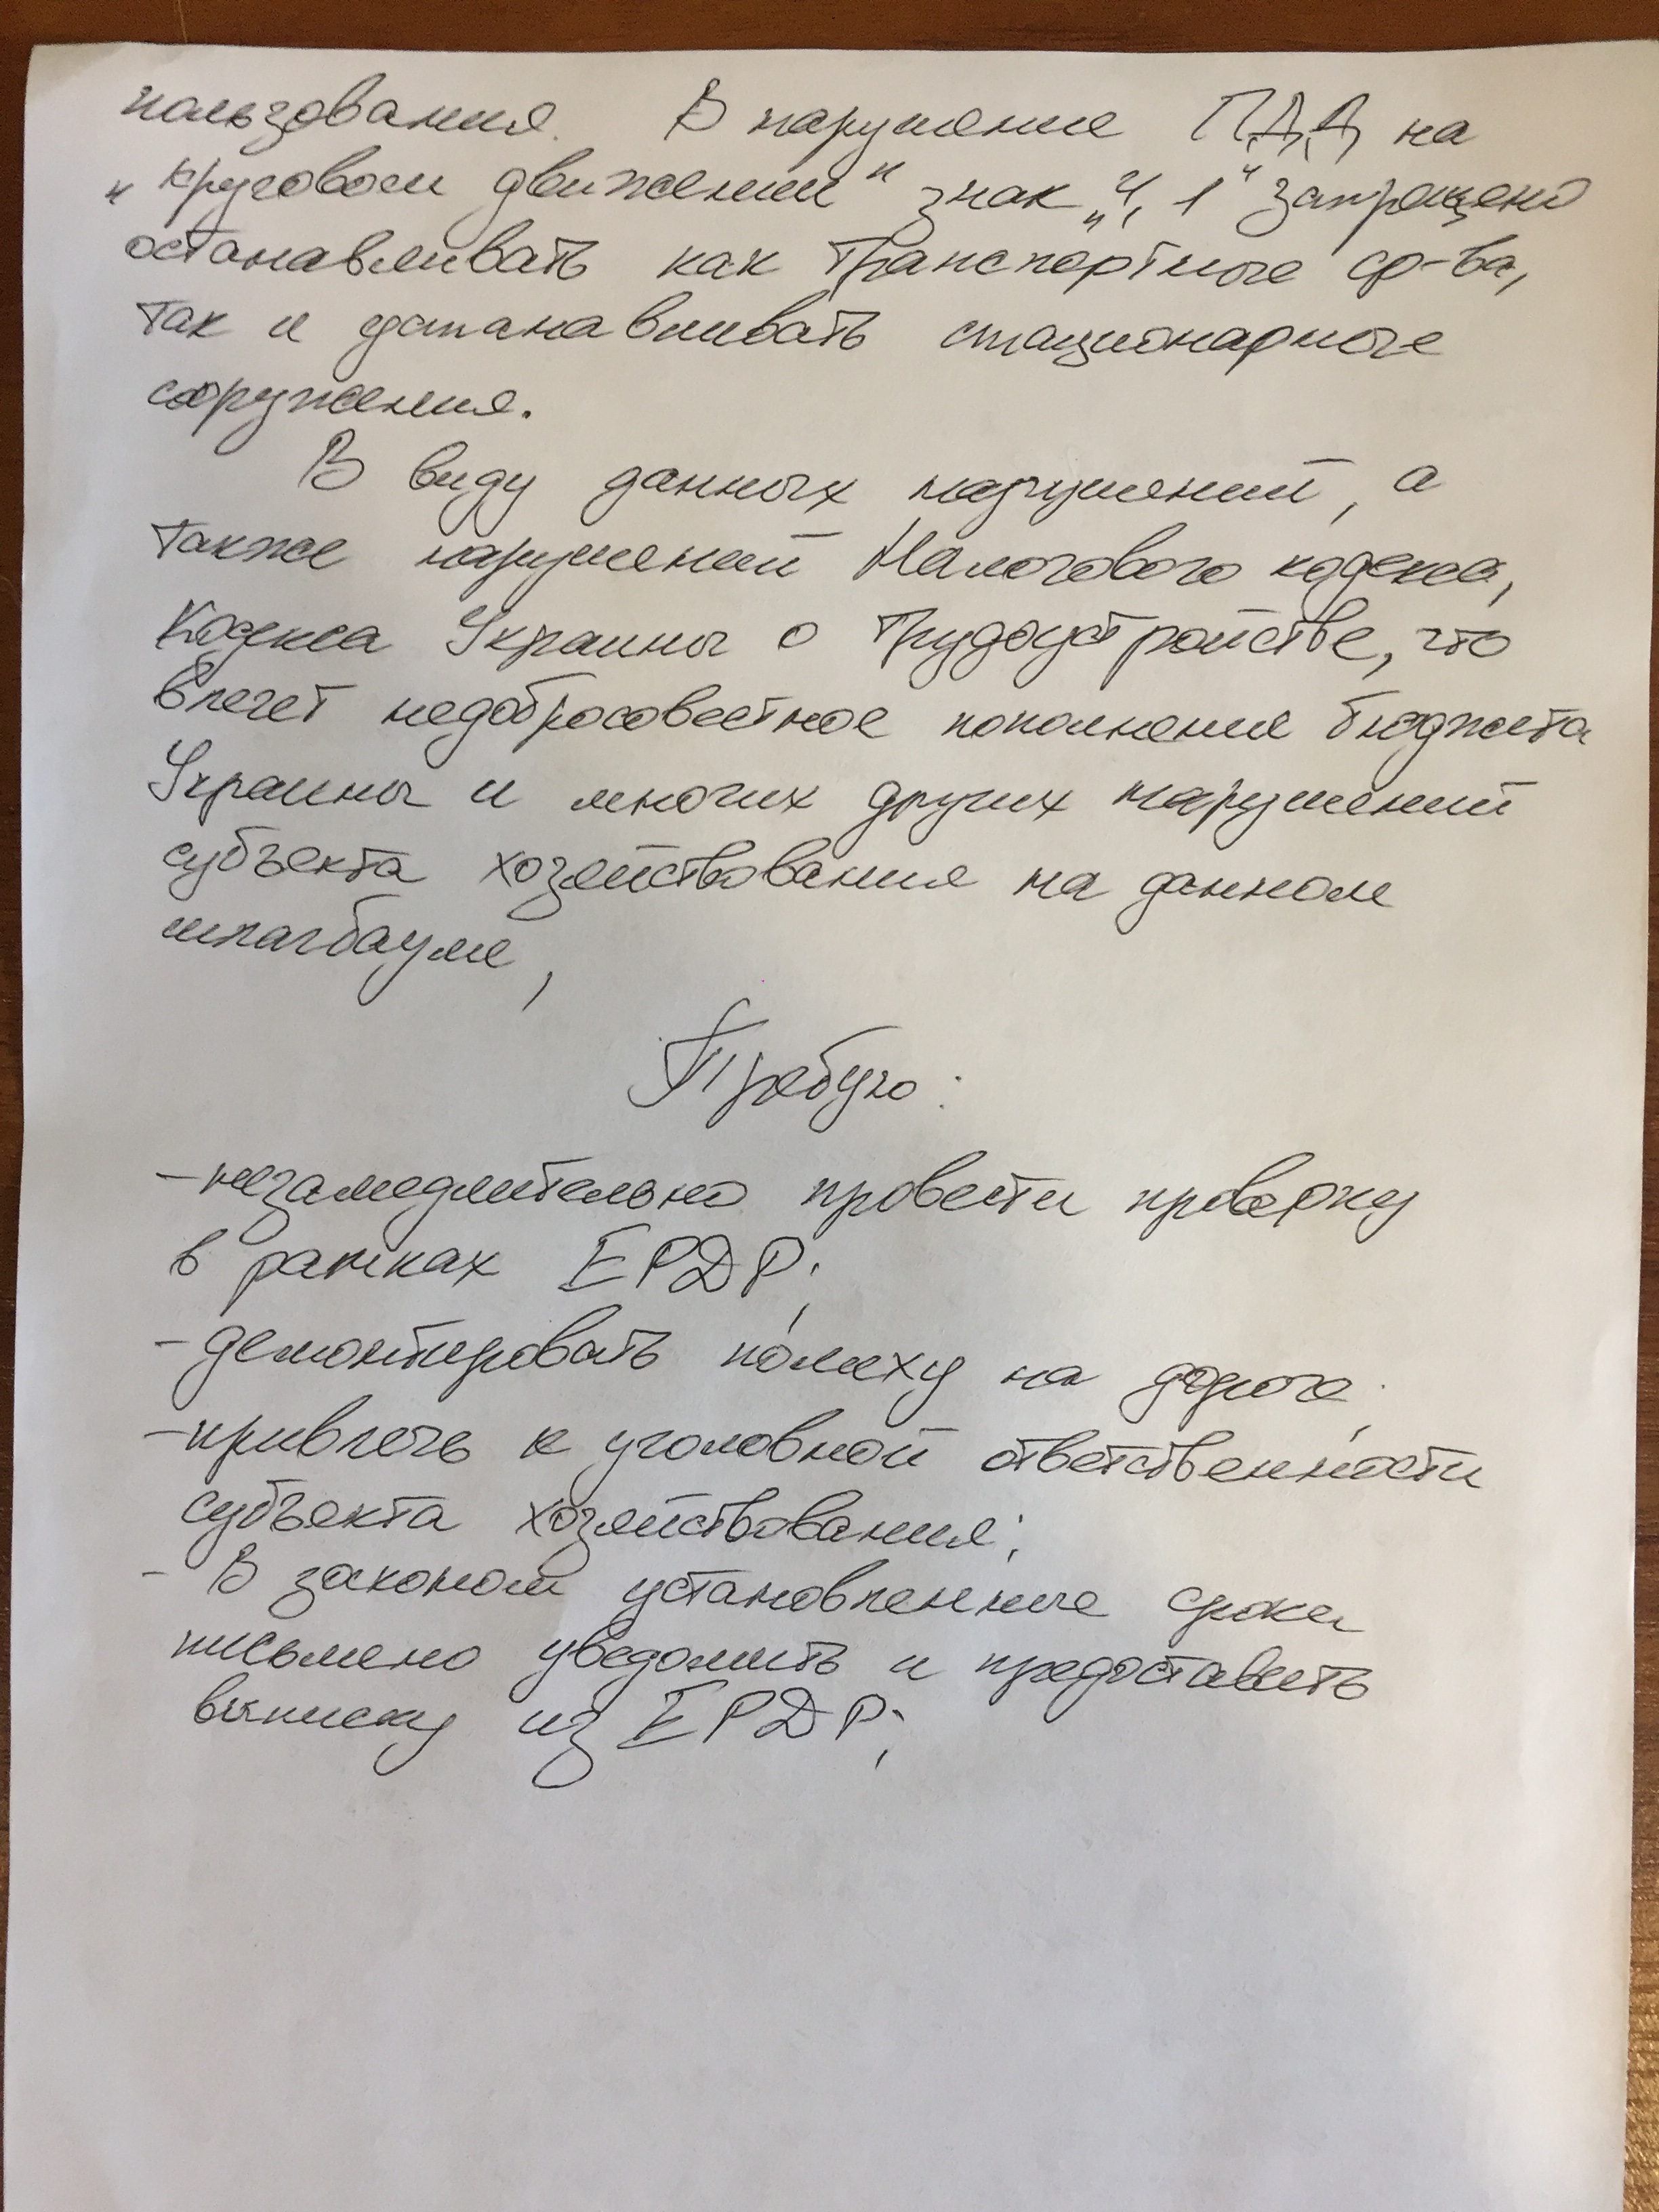 пользования. В нарушение П.Д.Д. на
„круговом движении" знак „4,1" запрещено
останавливать как транспортные ср-ва,
так и устанавливать стационарные
сооружения.
В виду данных нарушений, а
также нарушений Налогового кодекса,
Кодекса Украины о трудоустройстве, что
влечет недобросовестное пополнения бюджета
Украины и многих других нарушений
субъекта хозяйствования на данном
шлагбауме,
Требую:
- незамедлительно провести проверку
в рамках ЕРДР;
- демонтировать помеху на дороге;
- привлечь к уголовной ответственности
субъекта хозяйствования;
- В законом установленные сроки
письмено уведомить и предоставить
выписку из ЕРДР;